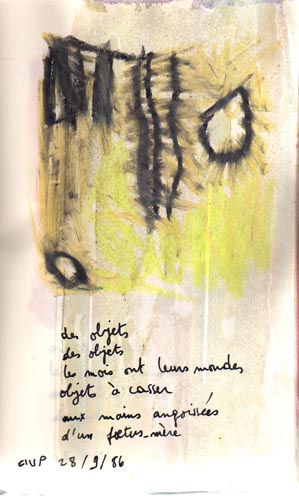 des objets
des objets
les mois ont leurs mondes
objet à casser
aux mains angoissées
d'un fœtus-mère
28/9/86